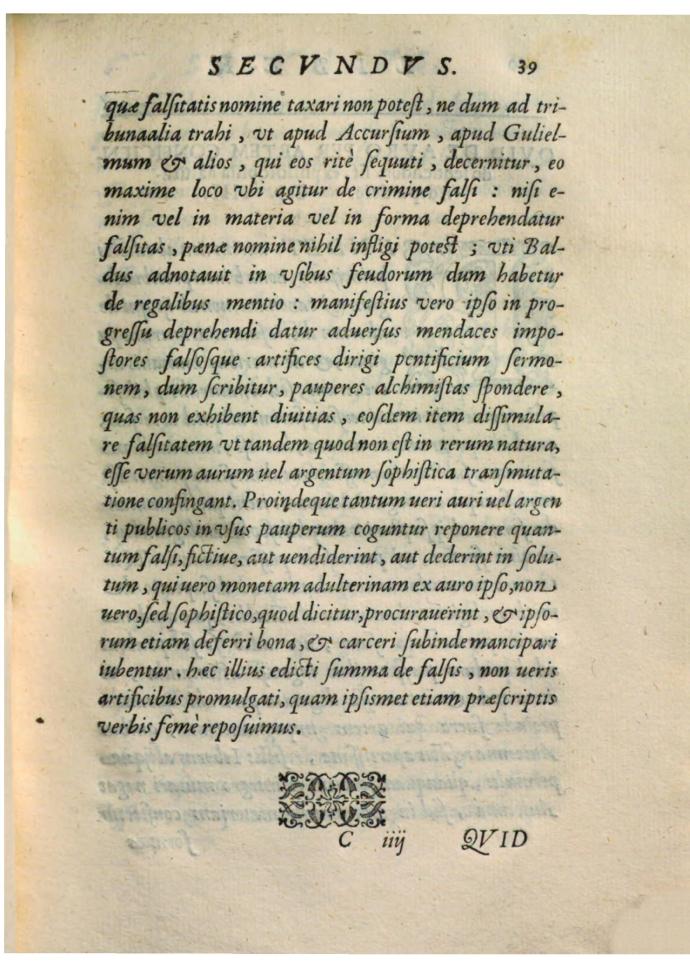 SECVNDVS. 39
quæ falſitatis nomine taxari non poteſt, ne dum ad tri-
bunaalia trahi, vt apud Accurſium, apud Guliel-
mum & alios, qui eos ritè ſequuti, decernitur, eo
maxime loco vbi agitur de crimine falſi : niſi e-
nim vel in materia vel in forma deprehendatur
falſitas, pænæ nomine nihil infligi poteſt ; vti Bal-
dus adnotauit in vſibus feudorum dum habetur
de regalibus mentio : manifeſtius vero ipſo in pro-
greſſu deprehendi datur aduerſus mendaces impo-
ſtores falſoſque artifices dirigi pentificium ſermo-
nem, dum ſcribitur, pauperes alchimiſtas ſpondere,
quas non exhibent diuitias, eoſdem item diſſimula-
re falſitatem vt tandem quod non eſt in rerum natura,
eſſe verum aurum uel argentum ſophiſtica tranſmuta-
tione confingant. Proindeque tantum ueri auri uel argen
ti publicos in vſus pauperum coguntur reponere quan-
tum falſi, fictiue, aut uendiderint, aut dederint in ſolu-
tum, qui uero monetam adulterinam ex auro ipſo, non
uero, ſed ſophiſtico, quod dicitur, procurauerint, & ipſo-
rum etiam deferri bona, & carceri ſubinde mancipari
iubentur. hæc illius edicti ſumma de falſis, non ueris
artificibus promulgati, quam ipſismet etiam præſcriptis
verbis femè repoſuimus.
C iiij QVID